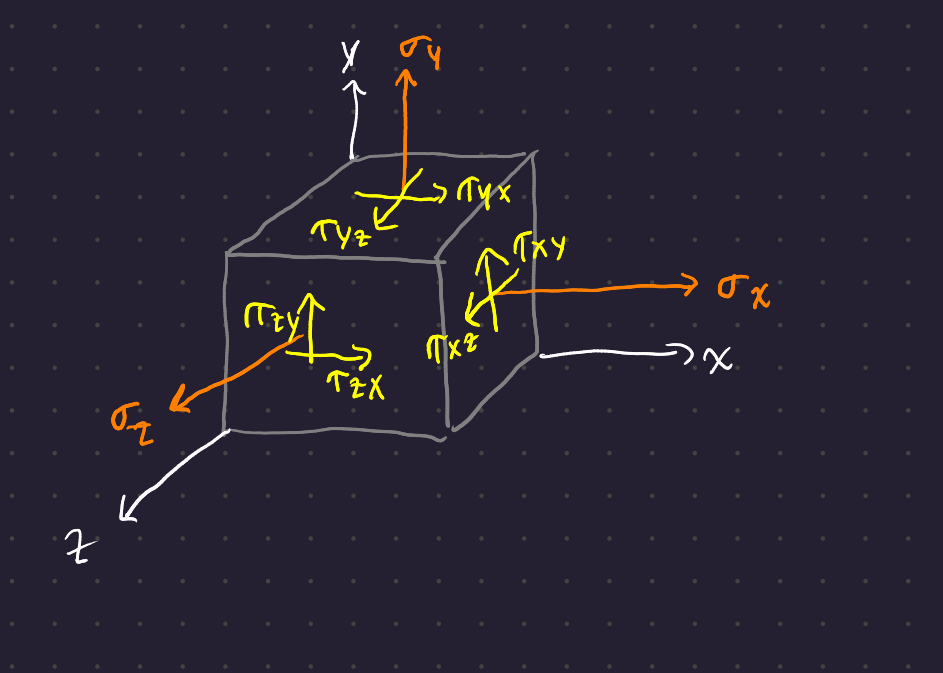 y
σy
τyx
τyz
τxy
σx
τzy
τxz
x
τzx
σz
z